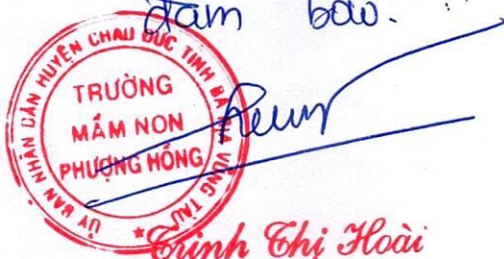 đảm bảo.
ỦY BAN NHÂN DÂN HUYỆN CHÂU ĐỨC TỈNH BÀ RỊA VŨNG TÀU
TRƯỜNG
MẦM NON
PHƯỢNG HỒNG
Trịnh Thị Hoài